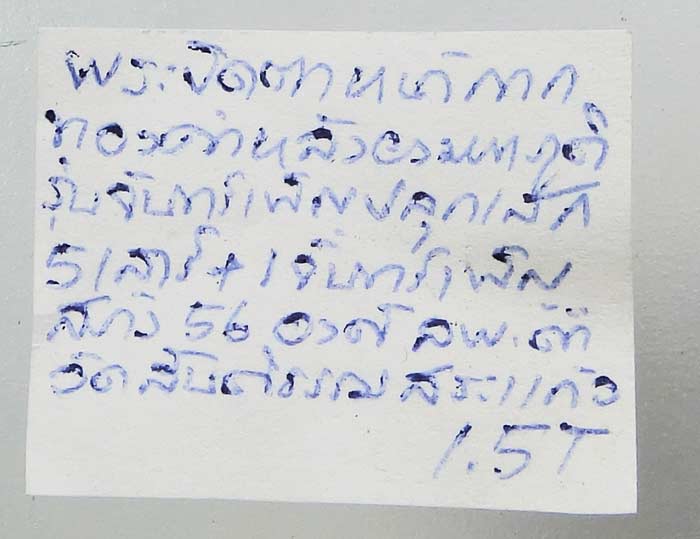 พระปิดตาหน้ากาก
ทองคำหลังธรรมชาติ
รุ่นจันทร์เพ็ญปลุกเสก
5 เสาร์ + 1 จันทร์เพ็ญ
สร้าง 56 องค์ ลพ.ดำ
วัดสันติธรรม สระแก้ว
1.5T